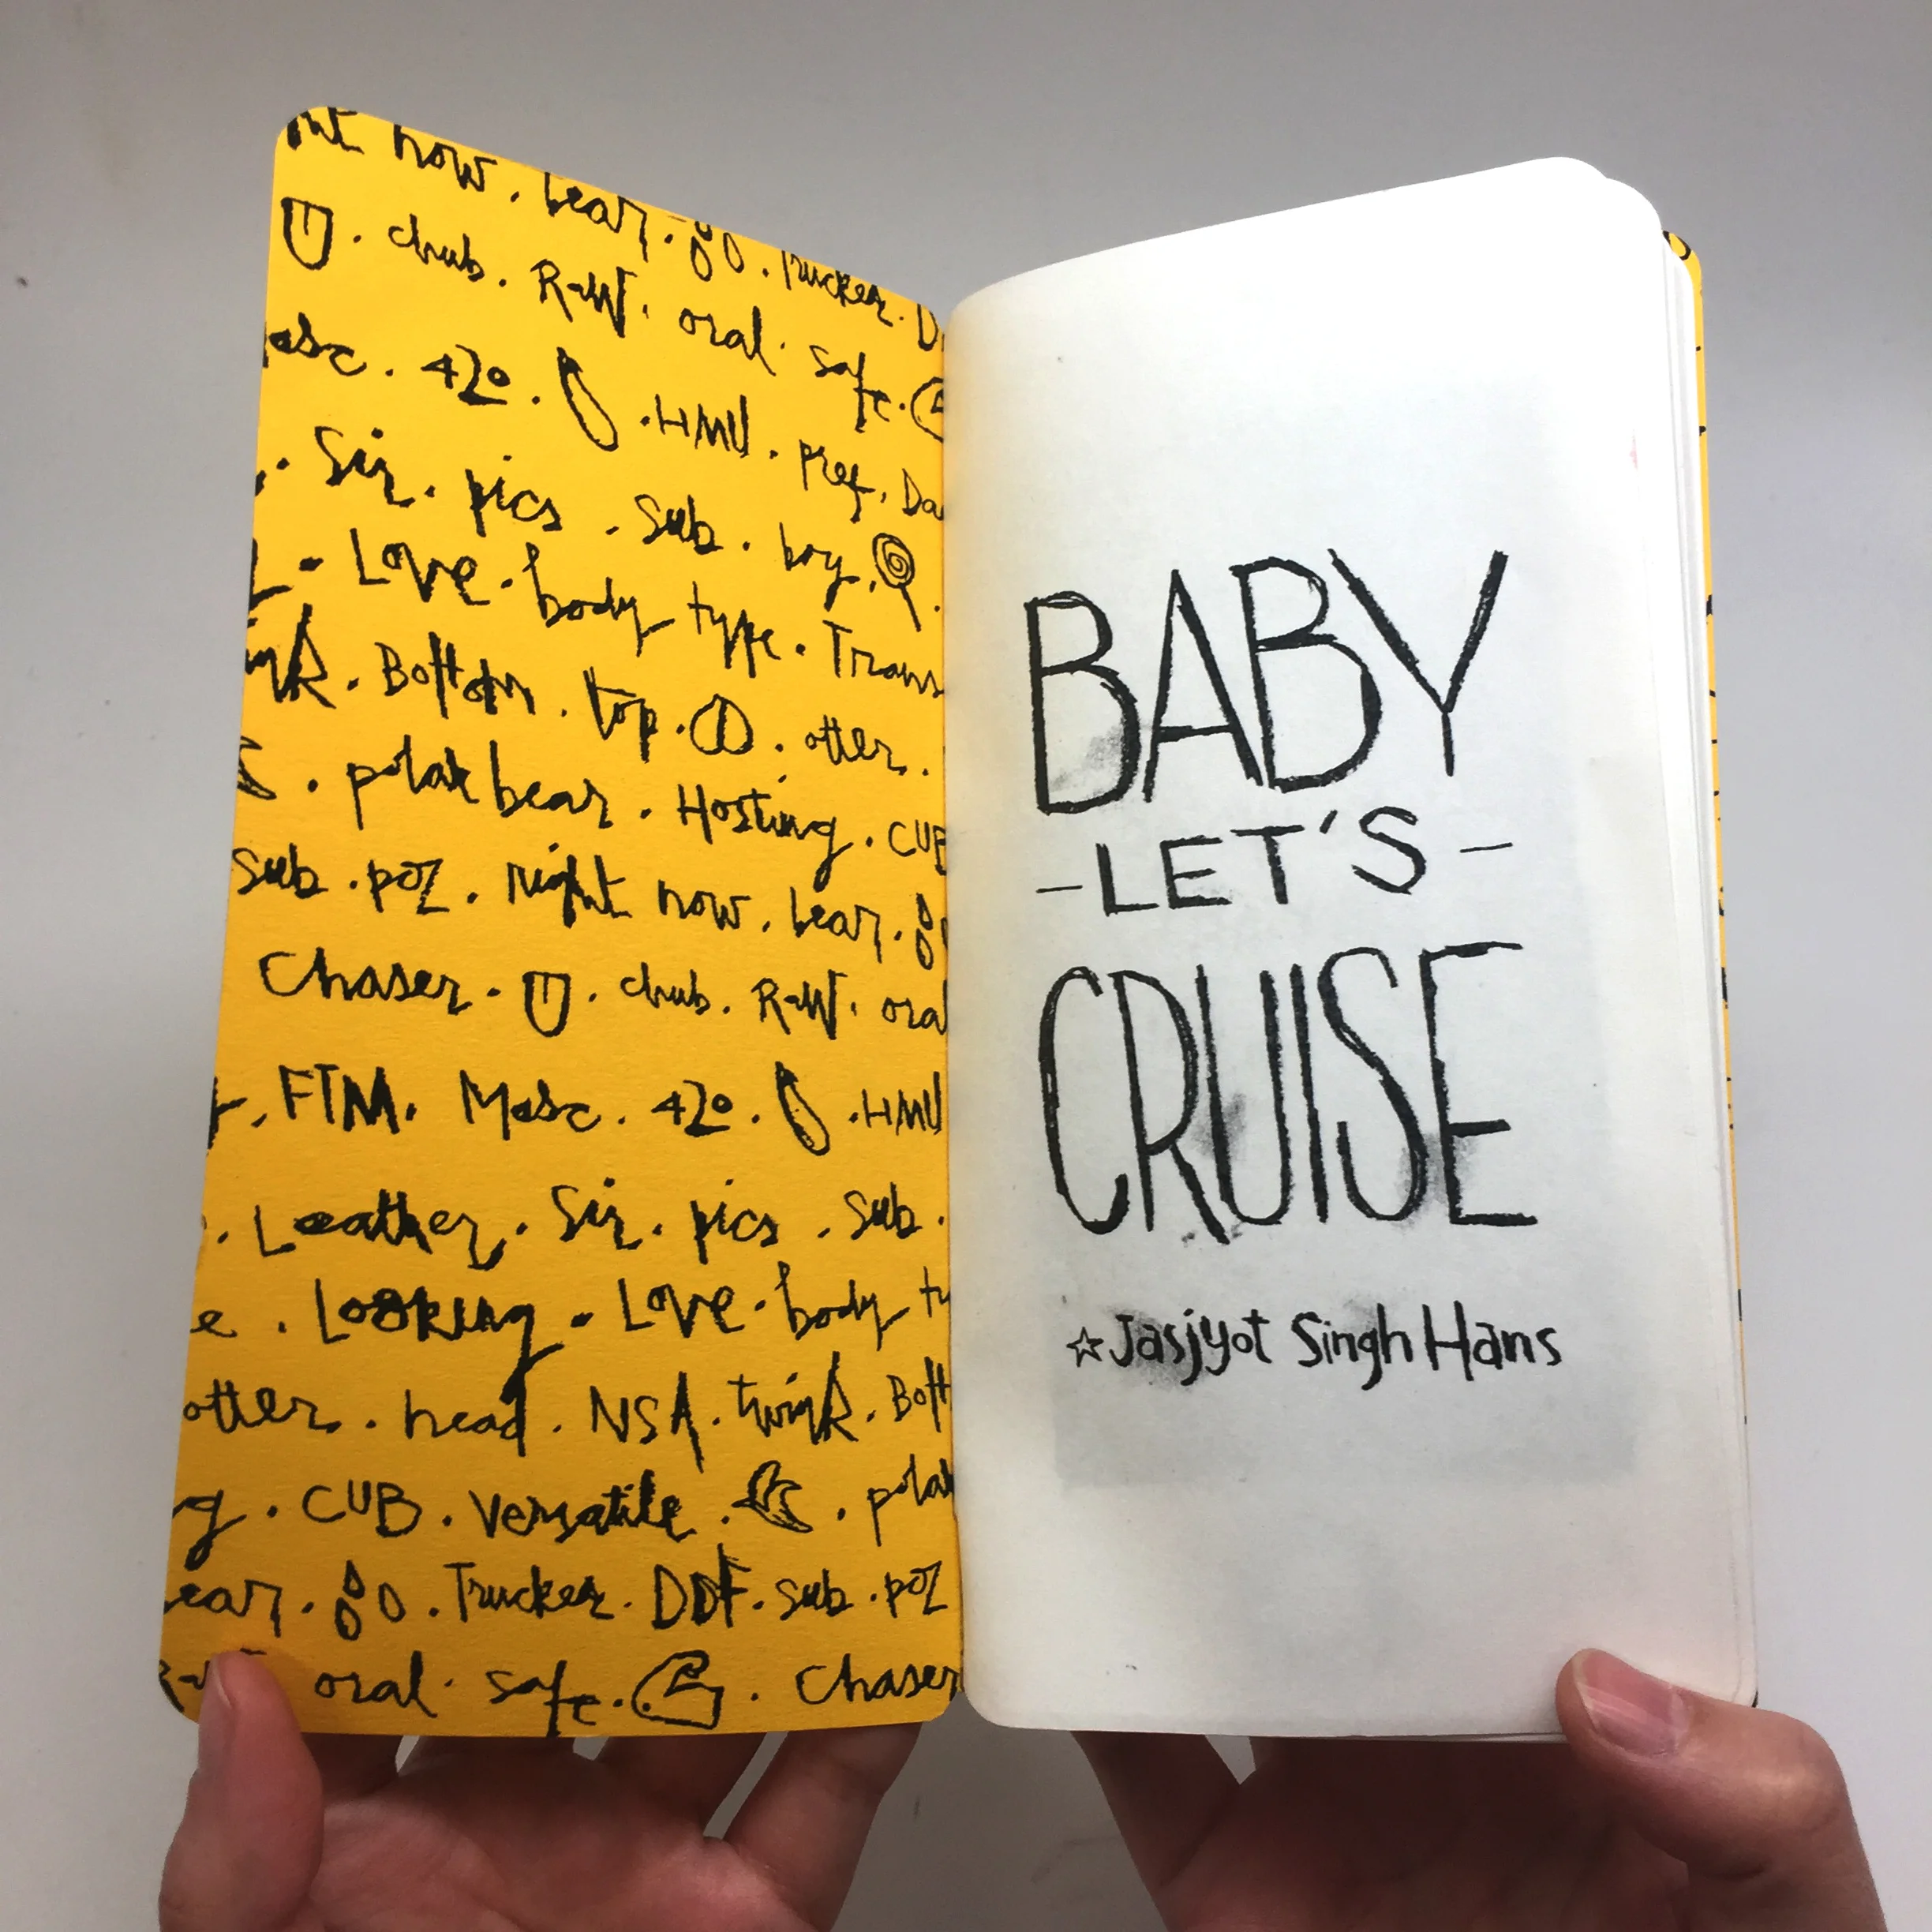 now . bear . Trucker .
. chub . Raw . oral . safe .
. 420 . . HMU . pref .
. Sir . pics . sub . boy .
. Love . body type . Trans
. Bottom . top . . otter .
. polar bear . Hosting . CUB
sub . poz . right now . bear .
Chaser . . chub . Raw . oral
. FTM . Masc . 420 . . HMU
. Leather . Sir . pics . sub .
. Looking . Love . body
otter . head . NSA . twink .
. CUB . Versatile . .
. . Trucker . DDF . sub . poz
oral . safe . . Chaser
BABY
- LET'S -
CRUISE
☆ Jasjyot Singh Hans